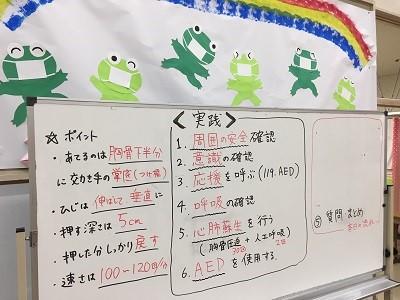 ☆ ポイント
・あてるのは 胸骨下半分
に交わき手の掌底(つけ根)
・ひじは 伸ばして 垂直に
・押す深さは 5cm
・押した分しっかり 戻す
・速さは 100~120回/分
<実践>
1. 周囲の安全確認
2. 意識の確認
3. 応援を呼ぶ (119.AED)
4. 呼吸の確認
5. 心肺蘇生を行う
(胸骨圧迫 + 人工呼吸)
30回 2回
6. AEDを使用する
⑤ 質問・まとめ